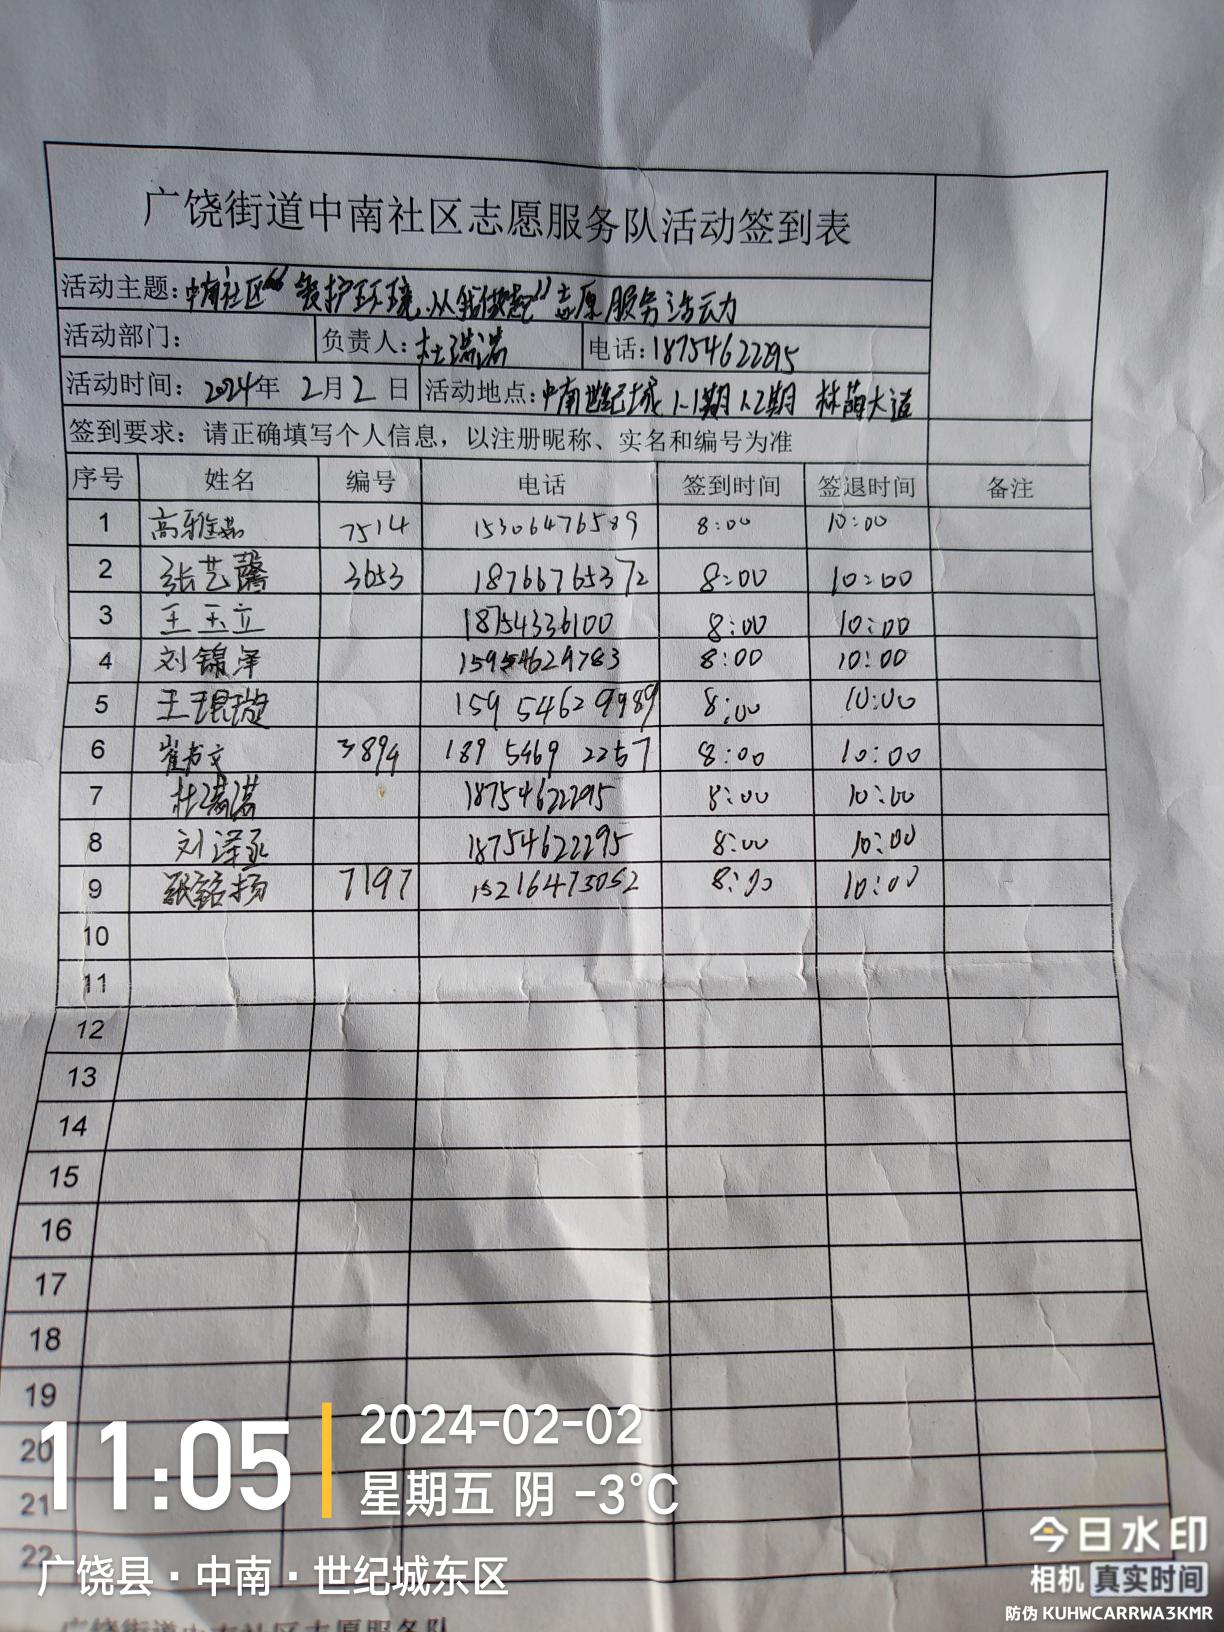 广饶街道中南社区志愿服务队活动签到表
活动主题：中南社区“爱护环境，从我做起”志愿服务活动
活动部门： 负责人：杜瑞诺 电话：18754622295
活动时间：2024年 2月2日 活动地点：中南世纪城1-1期1-2期 林荫大道
签到要求：请正确填写个人信息，以注册昵称、实名和编号为准
序号 姓名 编号 电话 签到时间 签退时间 备注
1 高雅茹 7514 15306476589 8:00 10:00
2 张艺馨 3653 18766765372 8:00 10:00
3 王玉立 18754336100 8:00 10:00
4 刘锦泽 15954629783 8:00 10:00
5 王琨璇 159 5462 9989 8:00 10:00
6 崔书文 3894 189 5469 2257 8:00 10:00
7 杜瑞诺 18754622295 8:00 10:00
8 刘泽丞 18754622295 8:00 10:00
9 张铭扬 7197 15216473052 8:00 10:00
10
11
12
13
14
15
16
17
18
19
20
21
22
11:05
2024-02-02
星期五 阴 -3°C
广饶县·中南·世纪城东区
今日水印
相机 真实时间
防伪 KUHWCARRWA3KMR
广饶街道中南社区志愿服务队